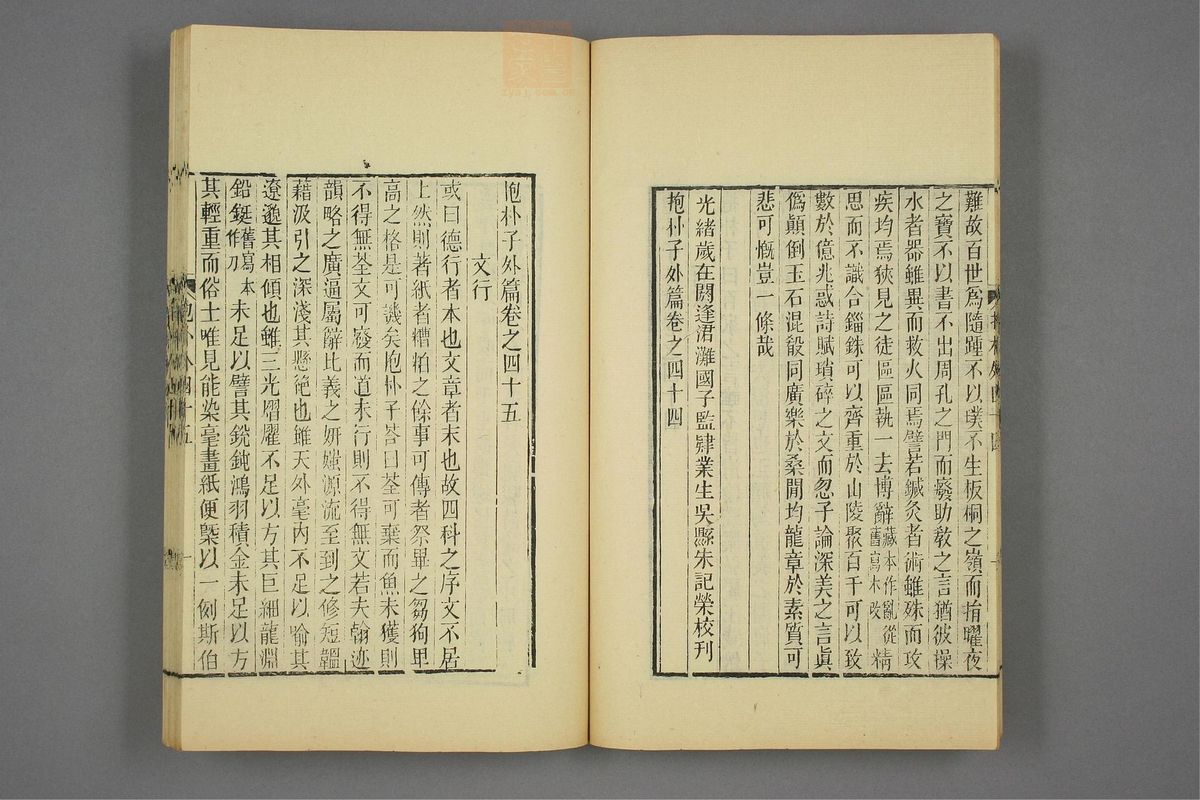 難故百世爲隨踵不以璞不生板桐之嶺而捐曜夜
之寶不以書不出周孔之門而廢助敎之言猶彼操
水者器雖異而救火同焉譬若鍼灸者術雖殊而攻
疾均焉狹見之徒區區執一去博辭藏本作亂從舊寫本改精
思而不識合錙銖可以齊重於山陵聚百千可以致
數於億兆惑詩賦瑣碎之文而忽子論深美之言眞
僞顚倒玉石混殽同廣樂於桑閒均龍章於素質可
悲可慨豈一條哉
光緖歲在閼逢涒灘國子監肄業生吳縣朱記榮校刊
抱朴子外篇卷之四十四
抱朴子外篇卷之四十五
文行
或曰德行者本也文章者末也故四科之序文不居
上然則著紙者糟粕之餘事可傳者祭畢之芻狗卑
高之格是可譏矣抱朴子荅曰荃可棄而魚未獲則
不得無荃文可廢而道未行則不得無文若夫翰迹
韻略之廣逼屬辭比義之姸媸源流至到之修短韞
藉汲引之深淺其懸絶也雖天外毫內不足以喻其
遼邈其相傾也雖三光熠燿不足以方其巨細龍淵
鉛鋌舊寫本作刀未足以譬其銳鈍鴻羽積金未足以方
其輕重而俗士唯見能染毫畫紙便槩以一例斯伯